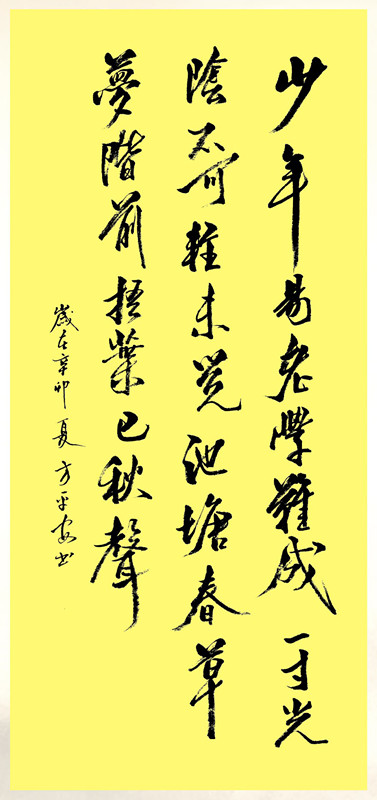 少年易老學難成一寸光
陰不可輕未觉池塘春草
夢階前梧葉已秋聲
歲在辛卯夏方平安书